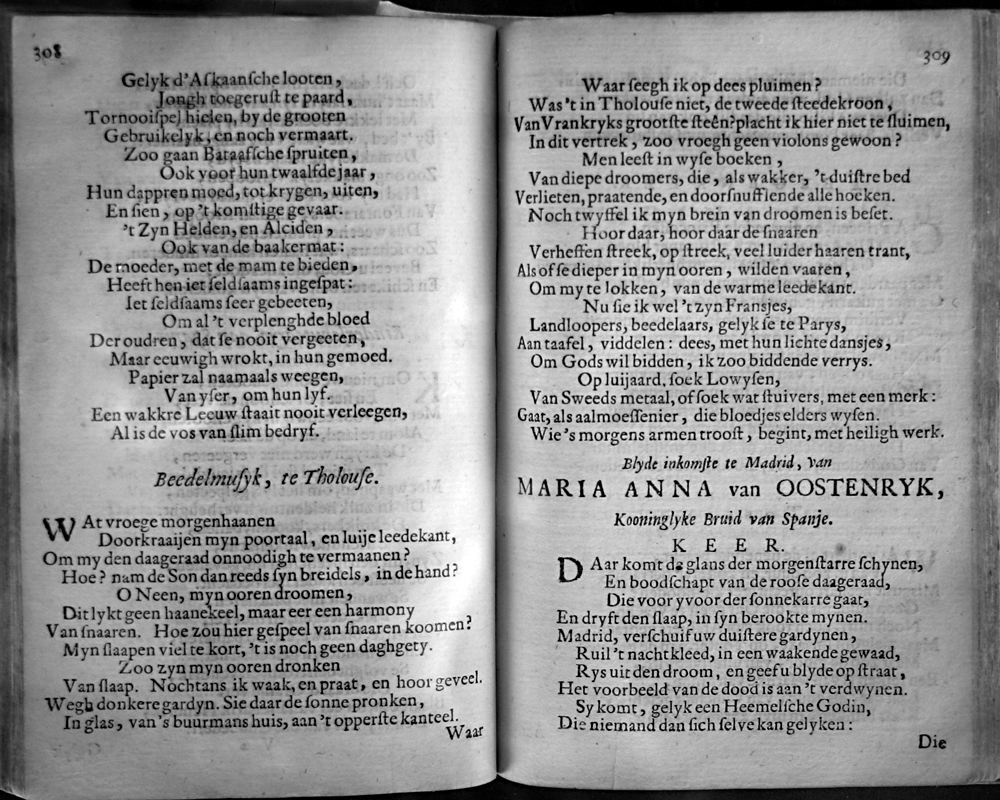 308
Gelyk d'Aſkaanſche looten,
Jongh toegeruſt te paard,
Tornooiſpel hielen, by de grooten
Gebruikelyk, en noch vermaart.
Zoo gaan Bataafſche ſpruiten,
Ook voor hun twaalfde jaar,
Hun dappren moed, tot krygen, uiten,
En ſien, op 't komſtige gevaar.
't Zyn Helden, en Alciden,
Ook van de baakermat:
De moeder, met de mam te bieden,
Heeft hen iet ſeldſaams ingeſpat:
Iet ſeldſaams ſeer gebeeten,
Om al 't verplenghde bloed
Der oudren, dat ſe nooit vergeeten,
Maar eeuwigh wrokt, in hun gemoed.
Papier zal naamaals weegen,
Van yſer, om hun lyf.
Een wakkre Leeuw ſtaait nooit verleegen,
Al is de vos van ſlim bedryf.
Beedelmuſyk, te Tholouſe.
WAt vroege morgenhaanen
Doorkraaijen myn poortaal, en luije leedekant,
Om my den daageraad onnoodigh te vermaanen?
Hoe? nam de Son dan reeds ſyn breidels, in de hand?
O Neen, myn ooren droomen,
Dit lykt geen haanekeel, maar eer een harmony
Van ſnaaren. Hoe zou hier geſpeel van ſnaaren koomen?
Myn ſlaapen viel te kort, 't is noch geen daghgety.
Zoo zyn myn ooren dronken
Van ſlaap. Nochtans ik waak, en praat, en hoor geveel.
Wegh donkere gardyn. Sie daar de ſonne pronken,
In glas, van's buurmans huis, aan 't opperſte kanteel.
Waar
309
Waar ſeegh ik op dees pluimen?
Was 't in Tholouſe niet, de tweede ſteedekroon,
Van Vrankryks grootſte ſteên? placht ik hier niet te ſluimen,
In dit vertrek, zoo vroegh geen violons gewoon?
Men leeſt in wyſe boeken,
Van diepe droomers, die, als wakker, 't duiſtre bed
Verlieten, praatende, en doorſnuffiende alle hoeken.
Noch twyffel ik myn brein van droomen is beſet.
Hoor daar, hoor daar de ſnaaren
Verheffen ſtreek, op ſtreek, veel luider haaren trant,
Als of ſe dieper in myn ooren, wilden vaaren,
Om my te lokken, van de warme leedekant.
Nu ſie ik wel 't zyn Fransjes,
Landloopers, beedelaars, gelyk ſe te Parys,
Aan taafel, viddelen: dees, met hun lichte dansjes,
Om Gods wil bidden, ik zoo biddende verrys.
Op luijaard, ſoek Lowyſen,
Van Sweeds metaal, of ſoek wat ſtuivers, met een merk:
Gaat, als aalmoeſſenier, die bloedjes elders wyſen.
Wie 's morgens armen trooſt, begint, met heiligh werk.
Blyde inkomſte te Madrid, van
MARIA ANNA van OOSTENRYK,
Kooninglyke Bruid van Spanje.
KEER.
DAar komt de glans der morgenſtarre ſchynen,
En boodſchapt van de rooſe daageraad,
Die voor yvoor der ſonnekarre gaat,
En dryft den ſlaap, in ſyn berookte mynen.
Madrid, verſchuif uw duiſtere gardynen,
Ruil 't nachtkleed, in een waakende gewaad,
Rys uit den droom, en geef u blyde op ſtraat,
Het voorbeeld van de dood is aan 't verdwynen.
Sy komt, gelyk een Heemelſche Godin,
Die niemand dan ſich ſelve kan gelyken:
Die